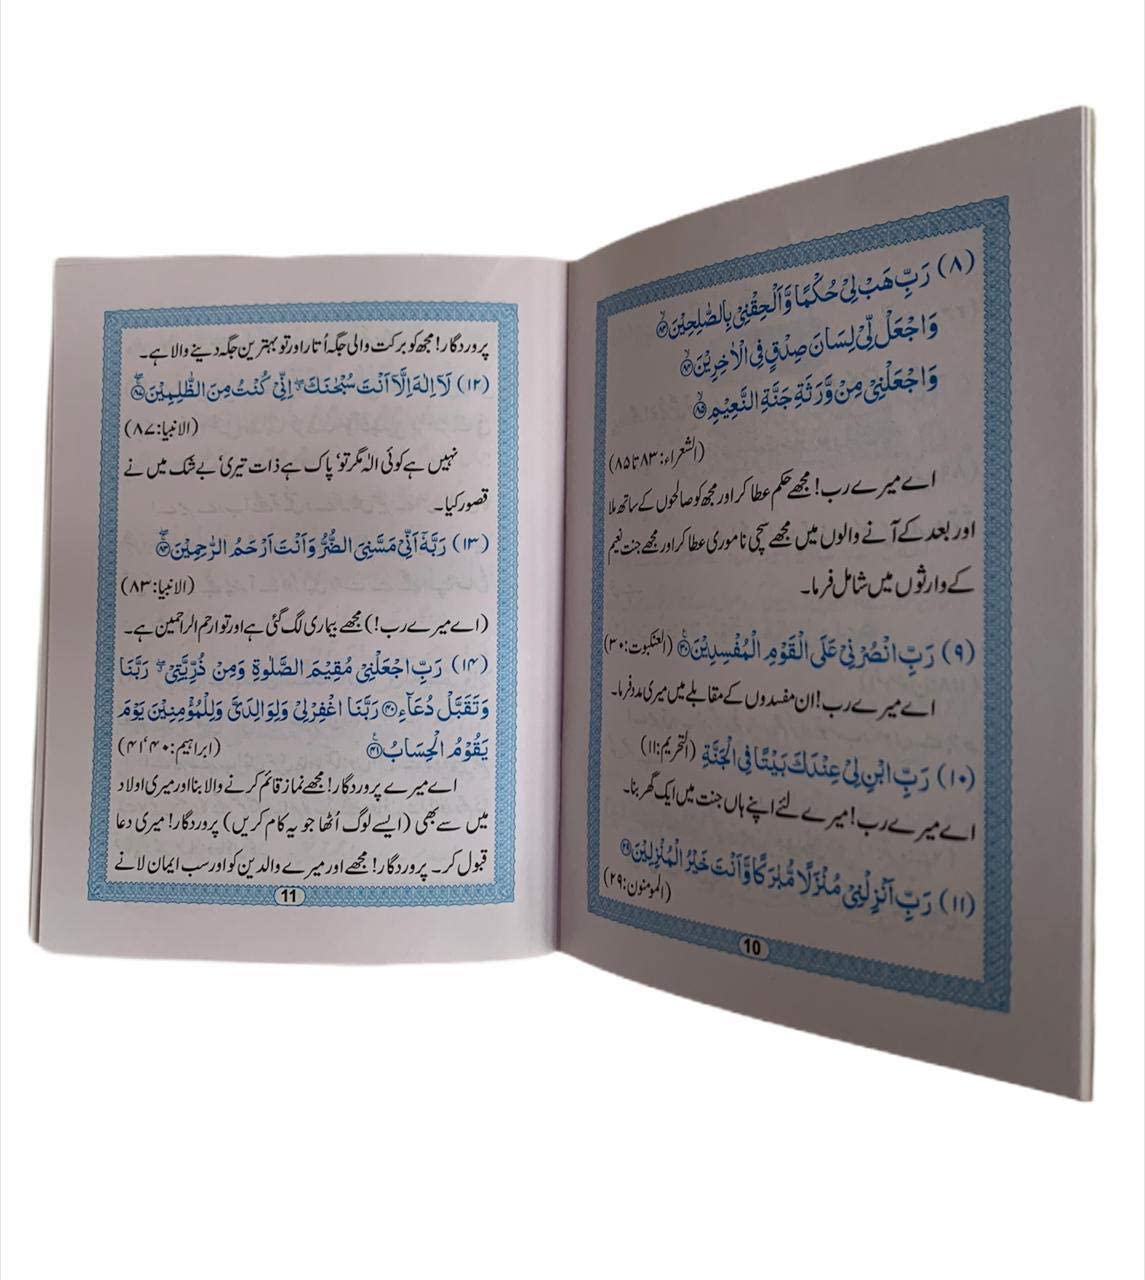 (۸) رَبِّ هَبْ لِیْ حُكْمًا وَّاَلْحِقْنِیْ بِالصّٰلِحِیْنَ ۸۳
وَاجْعَلْ لِّیْ لِسَانَ صِدْقٍ فِی الْاٰخِرِیْنَ ۸۴
وَاجْعَلْنِیْ مِنْ وَّرَثَةِ جَنَّةِ النَّعِیْمِ ۸۵
(الشعراء: ۸۳ تا ۸۵)
اے میرے رب! مجھے حکم عطا کر اور مجھ کو صالحوں کے ساتھ ملا
اور بعد کے آنے والوں میں مجھے سچی ناموری عطا کر اور مجھے جنت نعیم
کے وارثوں میں شامل فرما۔
(۹) رَبِّ انْصُرْنِیْ عَلَی الْقَوْمِ الْمُفْسِدِیْنَ ۳۰ (العنکبوت: ۳۰)
اے میرے رب! ان مفسدوں کے مقابلے میں میری مدد فرما۔
(۱۰) رَبِّ ابْنِ لِیْ عِنْدَكَ بَیْتًا فِی الْجَنَّةِ (التحریم: ۱۱)
اے میرے رب! میرے لئے اپنے ہاں جنت میں ایک گھر بنا۔
(۱۱) رَبِّ اَنْزِلْنِیْ مُنْزَلًا مُّبٰرَكًا وَّاَنْتَ خَیْرُ الْمُنْزِلِیْنَ ۲۹
(المومنون: ۲۹)
10
پروردگار! مجھ کو برکت والی جگہ اُتار اور تو بہترین جگہ دینے والا ہے۔
(۱۲) لَاۤ اِلٰهَ اِلَّاۤ اَنْتَ سُبْحٰنَكَ ۖ اِنِّیْ كُنْتُ مِنَ الظّٰلِمِیْنَ ۸۷
(الانبیا: ۸۷)
نہیں ہے کوئی الٰہ مگر تو، پاک ہے ذات تیری، بے شک میں نے
قصور کیا۔
(۱۳) رَبَّهٗۤ اَنِّیْ مَسَّنِیَ الضُّرُّ وَاَنْتَ اَرْحَمُ الرّٰحِمِیْنَ ۸۳
(الانبیا: ۸۳)
(اے میرے رب!) مجھے بیماری لگ گئی ہے اور تو ارحم الراحمین ہے۔
(۱۴) رَبِّ اجْعَلْنِیْ مُقِیْمَ الصَّلٰوةِ وَمِنْ ذُرِّیَّتِیْ ۖ رَبَّنَا
وَتَقَبَّلْ دُعَآءِ ۴۰ رَبَّنَا اغْفِرْ لِیْ وَلِوَالِدَیَّ وَلِلْمُؤْمِنِیْنَ یَوْمَ
یَقُوْمُ الْحِسَابُ ۴۱ (ابراہیم: ۴۰، ۴۱)
اے میرے پروردگار! مجھے نماز قائم کرنے والا بنا اور میری اولاد
میں سے بھی (ایسے لوگ اُٹھا جو یہ کام کریں) پروردگار! میری دعا
قبول کر۔ پروردگار! مجھے اور میرے والدین کو اور سب ایمان لانے
11